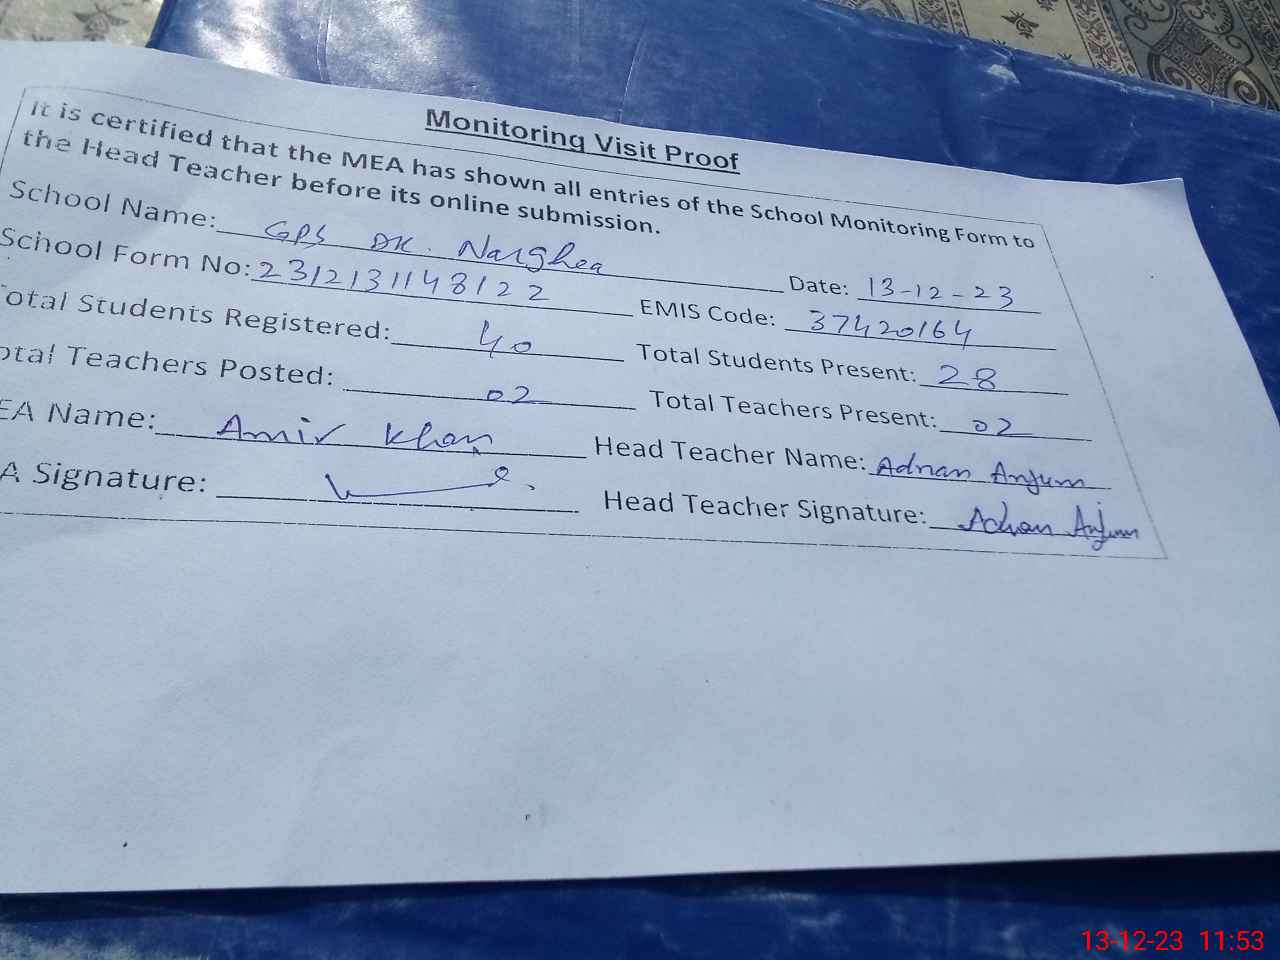 Monitoring Visit Proof
It is certified that the MEA has shown all entries of the School Monitoring Form to
the Head Teacher before its online submission.
School Name: GPS DK. Narghea Date: 13-12-23
School Form No: 2312131148122 EMIS Code: 37420164
otal Students Registered: 40 Total Students Present: 28
otal Teachers Posted: 02 Total Teachers Present: 02
EA Name: Amir Khan Head Teacher Name: Adnan Anjum
A Signature: Head Teacher Signature: Adnan Anjum
13-12-23 11:53